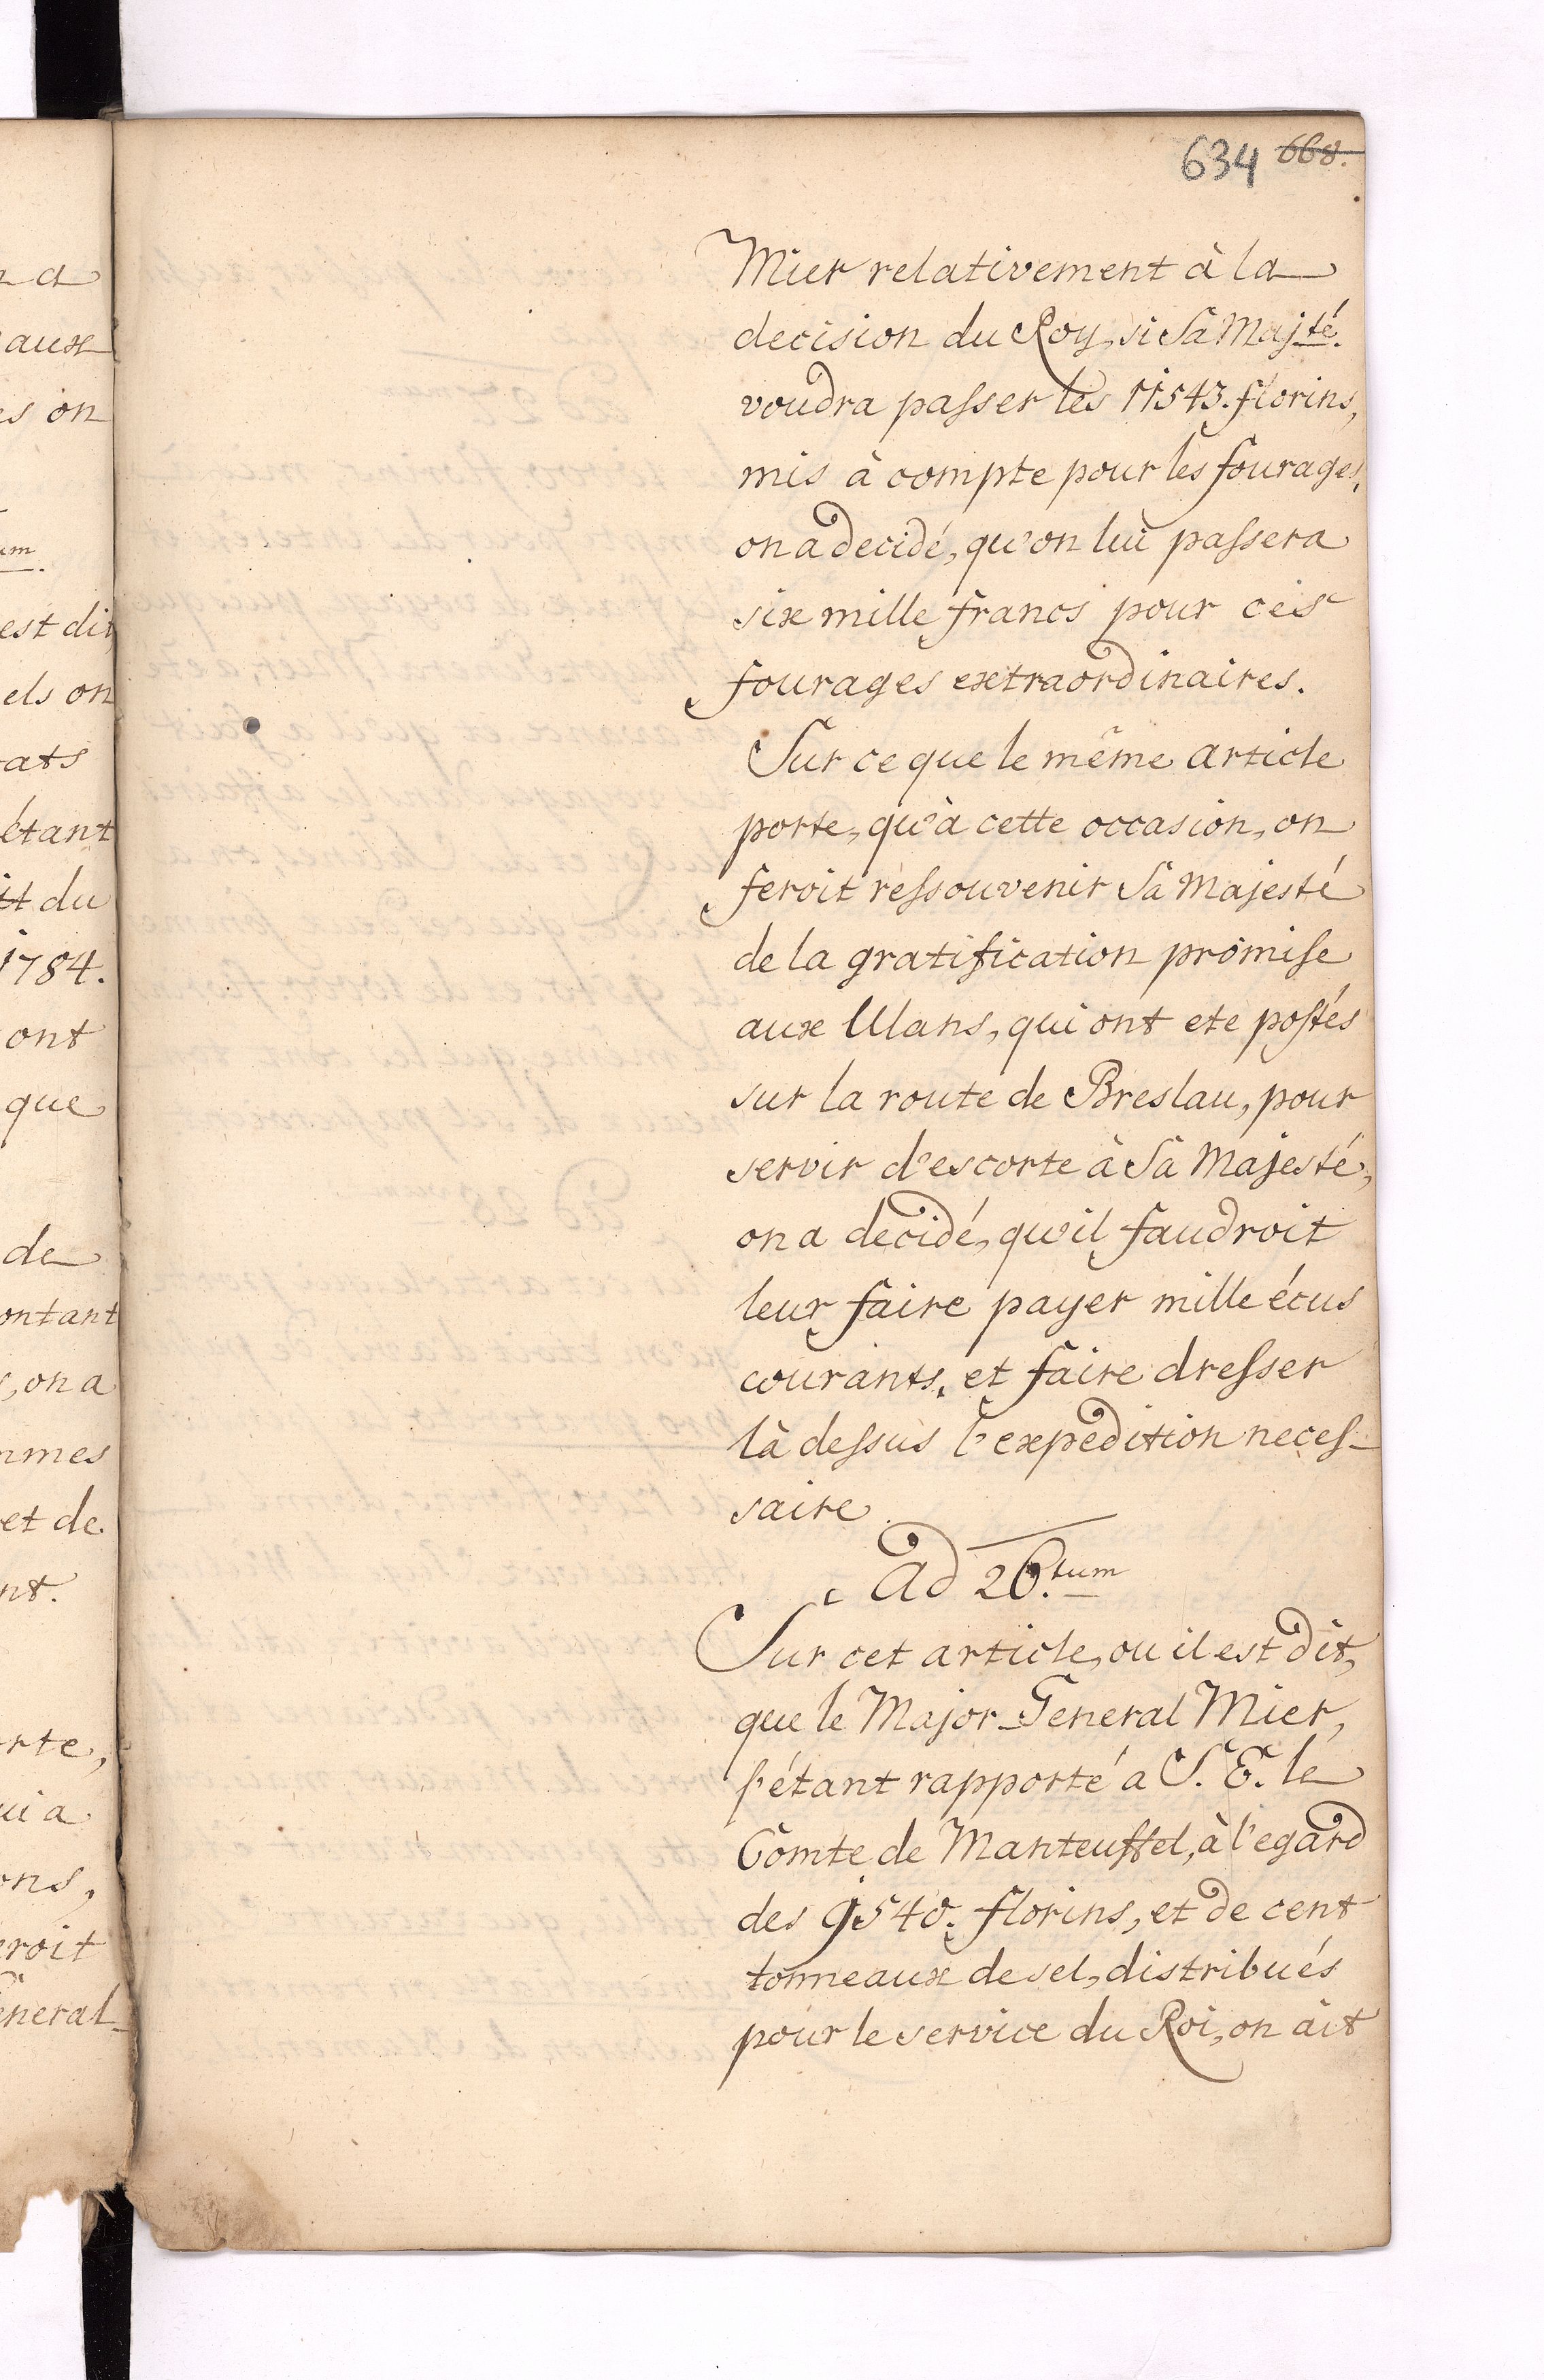 634 668.
Mier relativement à la
decision du Roy, si Sa Majté.
voudra passer les 11543. florins,
mis à compte pour les fourages,
on a decidé, qu'on lui passera
six mille francs pour ces
fourages extraordinaires.
Sur ce que le même article
porte, qu'à cette occasion, on
feroit ressouvenir Sa Majesté
de la gratification promise
aux Ulans, qui ont ete postés
sur la route de Breslau, pour
servir d'escorte à Sa Majesté,
on a decidé, qu'il faudroit
leur faire payer mille écus
courants, et faire dresser
là dessus l'expedition neces-
saire.
Ad 26.tum
Sur cet article, ou il est dit,
que le Major-General Mier,
s'étant rapporté a S. E. le
Comte de Manteuffel, à l'egard
des 9540. florins, et de cent
tonneaux de sel, distribués
pour le service du Roi, on ait
a
aux
es on
um.
est dit,
els on
ats
étant
du
1784.
ont
que
de
ontant
, on a
mmes
et de
nt.
rte,
ui a
ons,
roit
eneral-